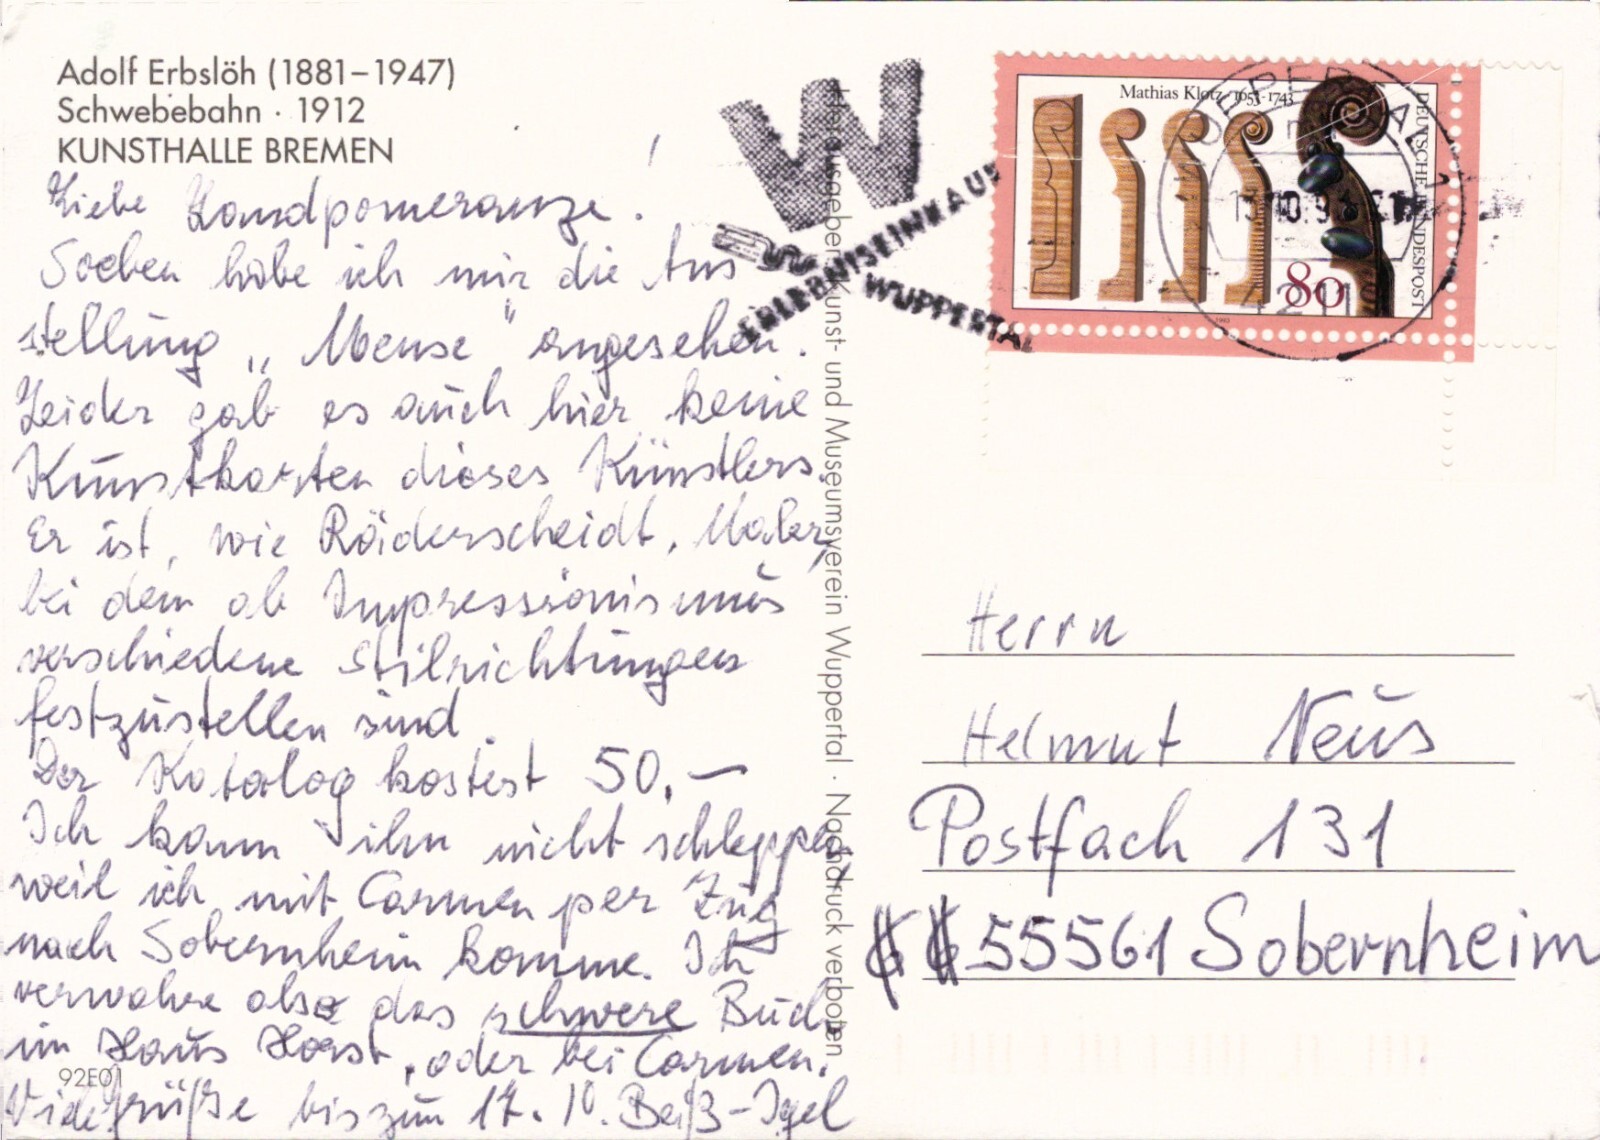 Adolf Erbslöh (1881–1947)
Schwebebahn · 1912
KUNSTHALLE BREMEN
Liebe Landpomeranze!
Soeben habe ich mir die Aus
stellung „Mense" angesehen.
Leider gab es auch hier keine
Kunstkarten dieses Künstlers.
Er ist, wie Räderscheidt, Maler,
bei dem ab Impressionismus
verschiedene Stilrichtungen
festzustellen sind.
Der Katalog kostet 50,—
Ich kann ihn nicht schleppen,
weil ich mit Carmen per Zug
nach Sobernheim komme. Ich
verwahre also das schwere Buch
im Haus Horst, oder bei Carmen.
Viele Grüße bis zum 17.10. Beiß-Igel
92E01
Herausgeber: Kunst- und Museumsverein Wuppertal · Nachdruck verboten
W
ERLEBNISEINKAUF
WUPPERTAL
Mathias Klotz · 1653-1743
DEUTSCHE BUNDESPOST
80
1993
WUPPERTAL 1
Herrn
Helmut Neus
Postfach 131
55561 Sobernheim